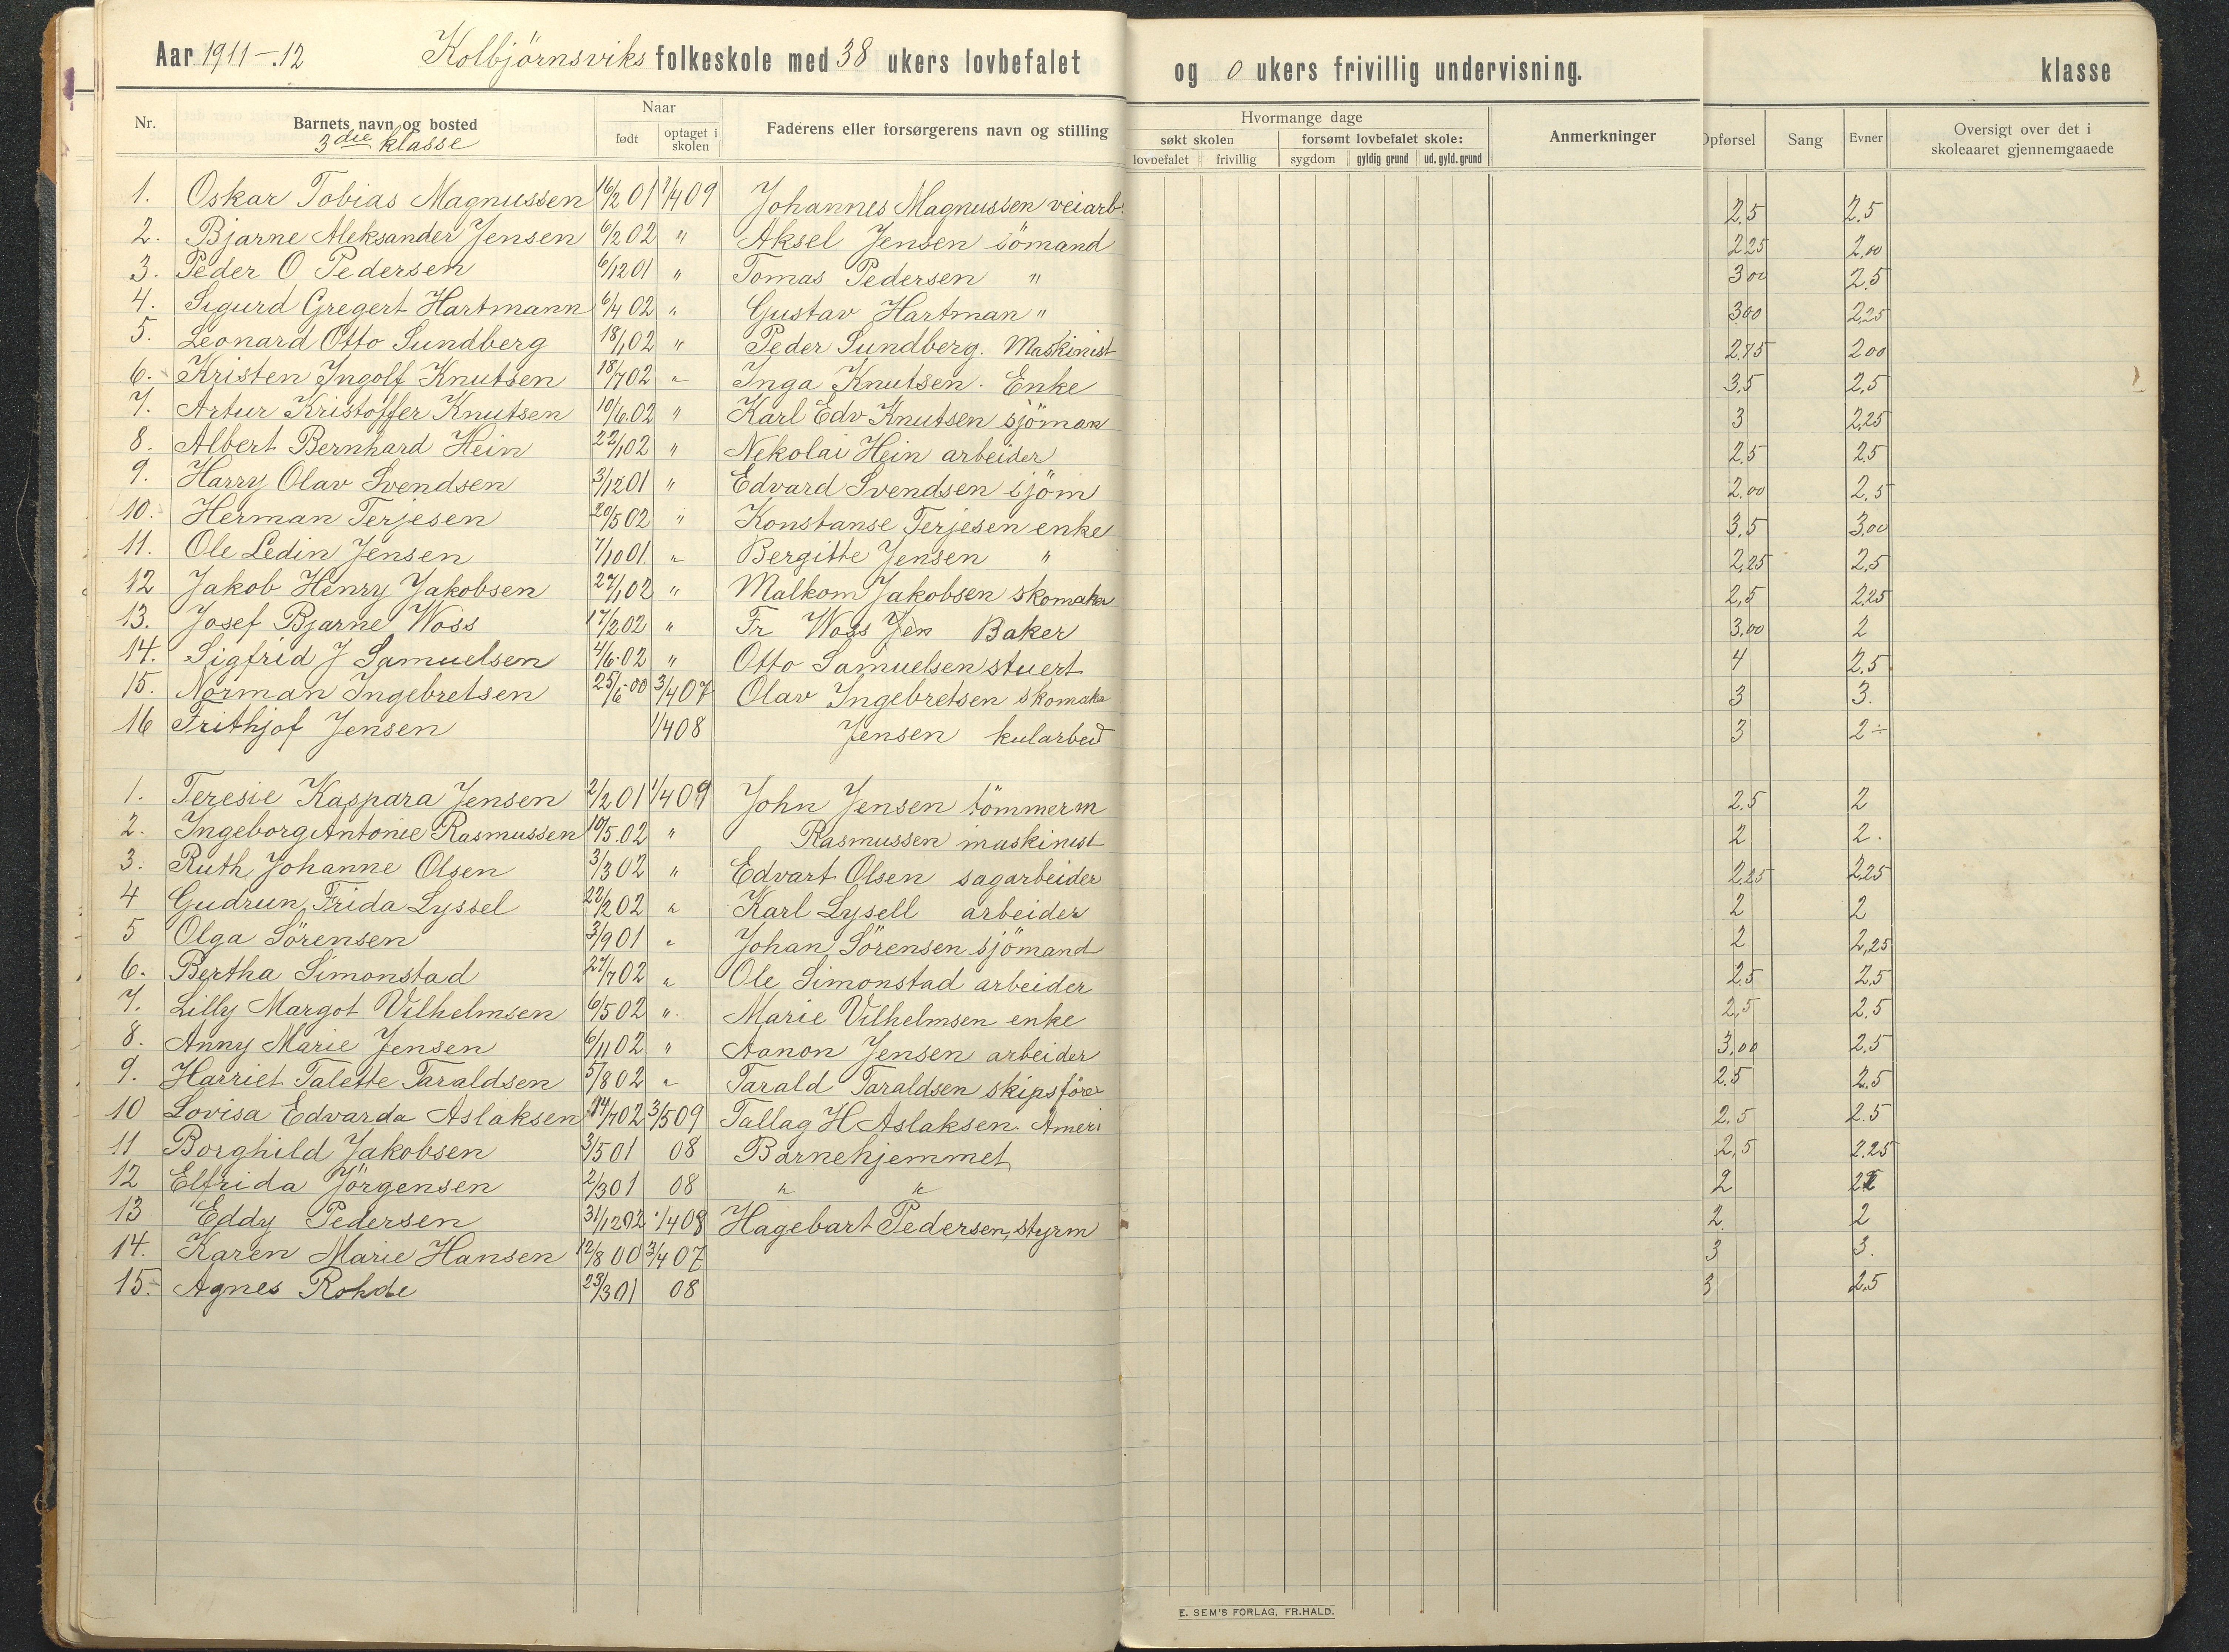 Aar 1911-.12 Kolbjörnsviks folkeskole med 38 ukers lovbefalet og 0 ukers frivillig undervisning. klasse
Nr. Barnets navn og bosted Naar født optaget i skolen Faderens eller forsørgerens navn og stilling Hvormange dage søkt skolen lovbefalet frivillig forsømt lovbefalet skole: sygdom gyldig grund ud. gyld. grund Anmerkninger Opførsel Sang Evner Oversigt over det i skoleaaret gjennemgaaede
3die klasse
1. Oskar Tobias Magnussen 16/2 01 1/4 09 Johannes Magnussen veiarb. 2,5 2,5
2. Bjarne Aleksander Jensen 6/2 02 " Aksel Jensen sömand 2 25 2,00
3. Peder O Pedersen 6/12 01 " Tomas Pedersen " 3 00 2,5
4. Sigurd Gregert Hartmann 6/4 02 " Gustav Hartman " 3,00 2,25
5. Leonard Otto Sundberg 18/1 02 " Peder Sundberg. Maskinist 2,75 2 00
6. Kristen Ingolf Knutsen 18/7 02 " Inga Knutsen. Enke 3,5 2,5
7. Artur Kristoffer Knutsen 10/6.02 " Karl Edv Knutsen sjöman 3 2,25
8. Albert Bernhard Hein 22/1 02 " Nekolai Hein arbeider 2,5 2,5
9. Harry Olav Svendsen 3/12 01 " Edvard Svendsen sjöm 2,00 2,5
10. Herman Terjesen 20/5 02 " Konstanse Terjesen enke 3,5 3,00
11. Ole Ledin Jensen 7/10 01. " Bergitte Jensen " 2,25 2,5
12 Jakob Henry Jakobsen 27/1 02 " Malkom Jakobsen skomaker 2,5 2,25
13. Josef Bjarne Woss 17/2 02 " Fr Woss Jen Baker 3,00 2
14. Sigfrid J Samuelsen 4/6.02 " Otto Samuelsen stuert 4 2,5
15. Norman Ingebretsen 25/6-00 3/4 07 Olav Ingebretsen skomaker 3 3.
16 Frithjof Jensen 1/4 08 Jensen kularbeid 3 2÷
1. Teresie Kaspara Jensen 2/2 01 1/4 09 John Jensen tömmerm 2,5 2
2. Ingeborg Antonie Rasmussen 10/5.02 " Rasmussen maskinist 2 2.
3. Ruth Johanne Olsen 3/3 02 " Edvart Olsen sagarbeider 2,25 2,25
4 Gudrun Frida Lyssel 22/2 02 " Karl Lysell arbeider 2 2
5 Olga Sörensen 3/9 01 " Johan Sörensen sjömand 2 2,25
6. Bertha Simonstad 27/7 02 " Ole Simonstad arbeider 2,5 2,5
7. Lilly Margot Vilhelmsen 6/5 02 " Marie Vilhelmsen enke 2,5 2,5
8. Anny Marie Jensen 6/11 02 " Aanon Jensen arbeider 3,00 2,5
9. Harriet Talette Taraldsen 5/8 02 " Tarald Taraldsen skipsförer 2,5 2,5
10 Lovisa Edvarda Aslaksen 14/7 02 3/5 09 Tallag H Aslaksen. Ameri 2,5 2.5
11 Borghild Jakobsen 3/5 01 08 Barnehjemmet 2,5 2.25
12 Elfrida Jörgensen 2/3 01 08 " " 2
13 Eddy Pedersen 31/12 02 1/4 08 Hagebart Pedersen, styrm 2. 2
14. Karen Marie Hansen 12/8 00 3/4 07 3 3.
15. Agnes Rohde 23/3 01 08 3 2,5
E. SEM'S FORLAG, FR.HALD.